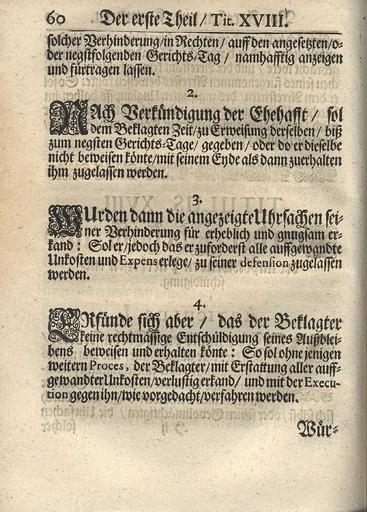 60 Der erste Theil / Tit. XVIII.
solcher Verhinderung/in Rechten / auff den angesetzten/o-
der negstfolgenden Gerichts/Tag / namhafftig anzeigen
und fürtragen lassen.
2.
NAch Verkündigung der Ehehafft / sol
dem Beklagten Zeit/zu Erweisung derselben / biß
zum negsten Gerichts-Tage/ gegeben / oder do er dieselbe
nicht beweisen könte/mit seinem Eyde als dann zuerhalten
ihm zugelassen werden.
3.
WUrden dann die angezeigte Uhrsachen sei-
ner Verhinderung für erheblich und gnugsam er-
kand : Sol er/jedoch das er zuforderst alle auffgewandte
Unkosten und Expens erlege/ zu seiner defension zugelassen
werden.
4.
ERfünde sich aber / das der Beklagter
keine rechtmässige Entschüldigung seines Außblei-
bens beweisen und erhalten könte : So sol ohne jenigen
weitern Proces, der Beklagter/mit Erstattung aller auff-
gewandter Unkosten/verlustig erkand/ und mit der Execu-
tion gegen ihn/wie vorgedacht/verfahren werden.
Wür-